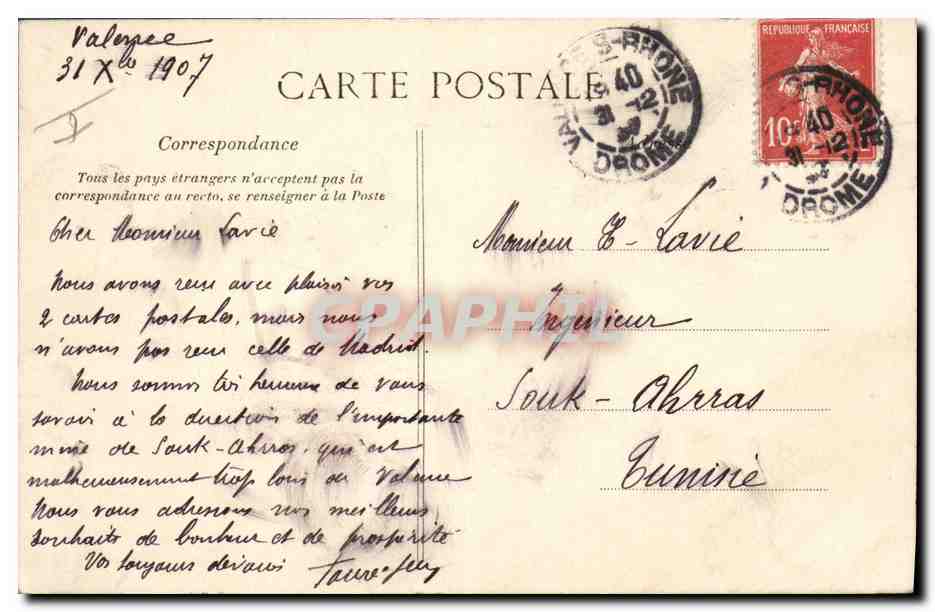 Valence
31 Xbre 1907
CARTE POSTALE
Correspondance
Tous les pays étrangers n'acceptent pas la
correspondance au recto, se renseigner à la Poste
Cher Monsieur Lavie
Nous avons reçu avec plaisir vos
2 cartes postales, mais nous
n'avons pas reçu celle de Madrid.
Nous sommes très heureux de vous
savoir à la direction de l'importante
mine de Souk-Ahrras, qui est
malheureusement trop loin de Valence
Nous vous adressons nos meilleurs
souhaits de bonheur et de prospérité
Vos toujours dévoués
Monsieur E. Lavie
Ingénieur
Souk-Ahrras
Tunisie
VALENCE S-RHONE
40
31 -12
DROME
REPUBLIQUE FRANÇAISE
10
S-RHONE
40
31 -12
DROME
CPAPHIL